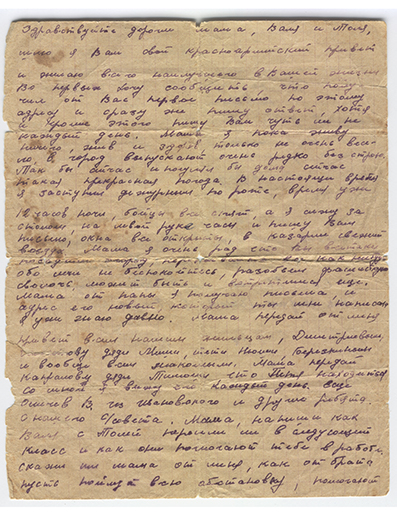 Здравствуйте дорогие мама, Валя и Толя,
шлю я Вам свой красноармейский привет
и желаю всего наилучшего в Вашей жизни
Во первых хочу сообщить, что полу
чил от Вас первое письмо по этому
адресу и сразу же пишу ответ, хотя
и кроме этого пишу Вам чуть ли не
каждый день. Мама я пока живу
ничего жив и здоров только не очень весе-
ло. В город выпускают очень редко
Так бы сейчас и пошёл бы домой сейчас
такая прекрасная погода, в настоящее время
я заступил дежурным по роте, время уже
12 часов ночи, бойцы все спят, а я сижу за
столом на левой руке часы и пишу Вам
письмо, окна все открыты, в казарме свежий
воздух. Мама я очень рад что
обо мне не беспокойтесь, разобьём фашистскую
сволочь может быть и встретимся еще.
Мама от папы я получаю письма,
адрес его новый который ты мне написала
я уже знаю давно. Мама передай от меня
привет всем нашим жильцам, Дмитриевым,
дяди Миши, тёти Нюши, Березкиным
и вообще всем знакомым. Мама передай
что Женя находится
со мной я вижу его каждый день. Еще
В. из Ивановского и другие ребята.
с нашего совета. Мама, напиши как
Валя с Толей перешли ли в следующий
класс и как они помогают тебе в работе,
скажи им мама от меня, как от брата
пусть поймут всю обстановку, помогают